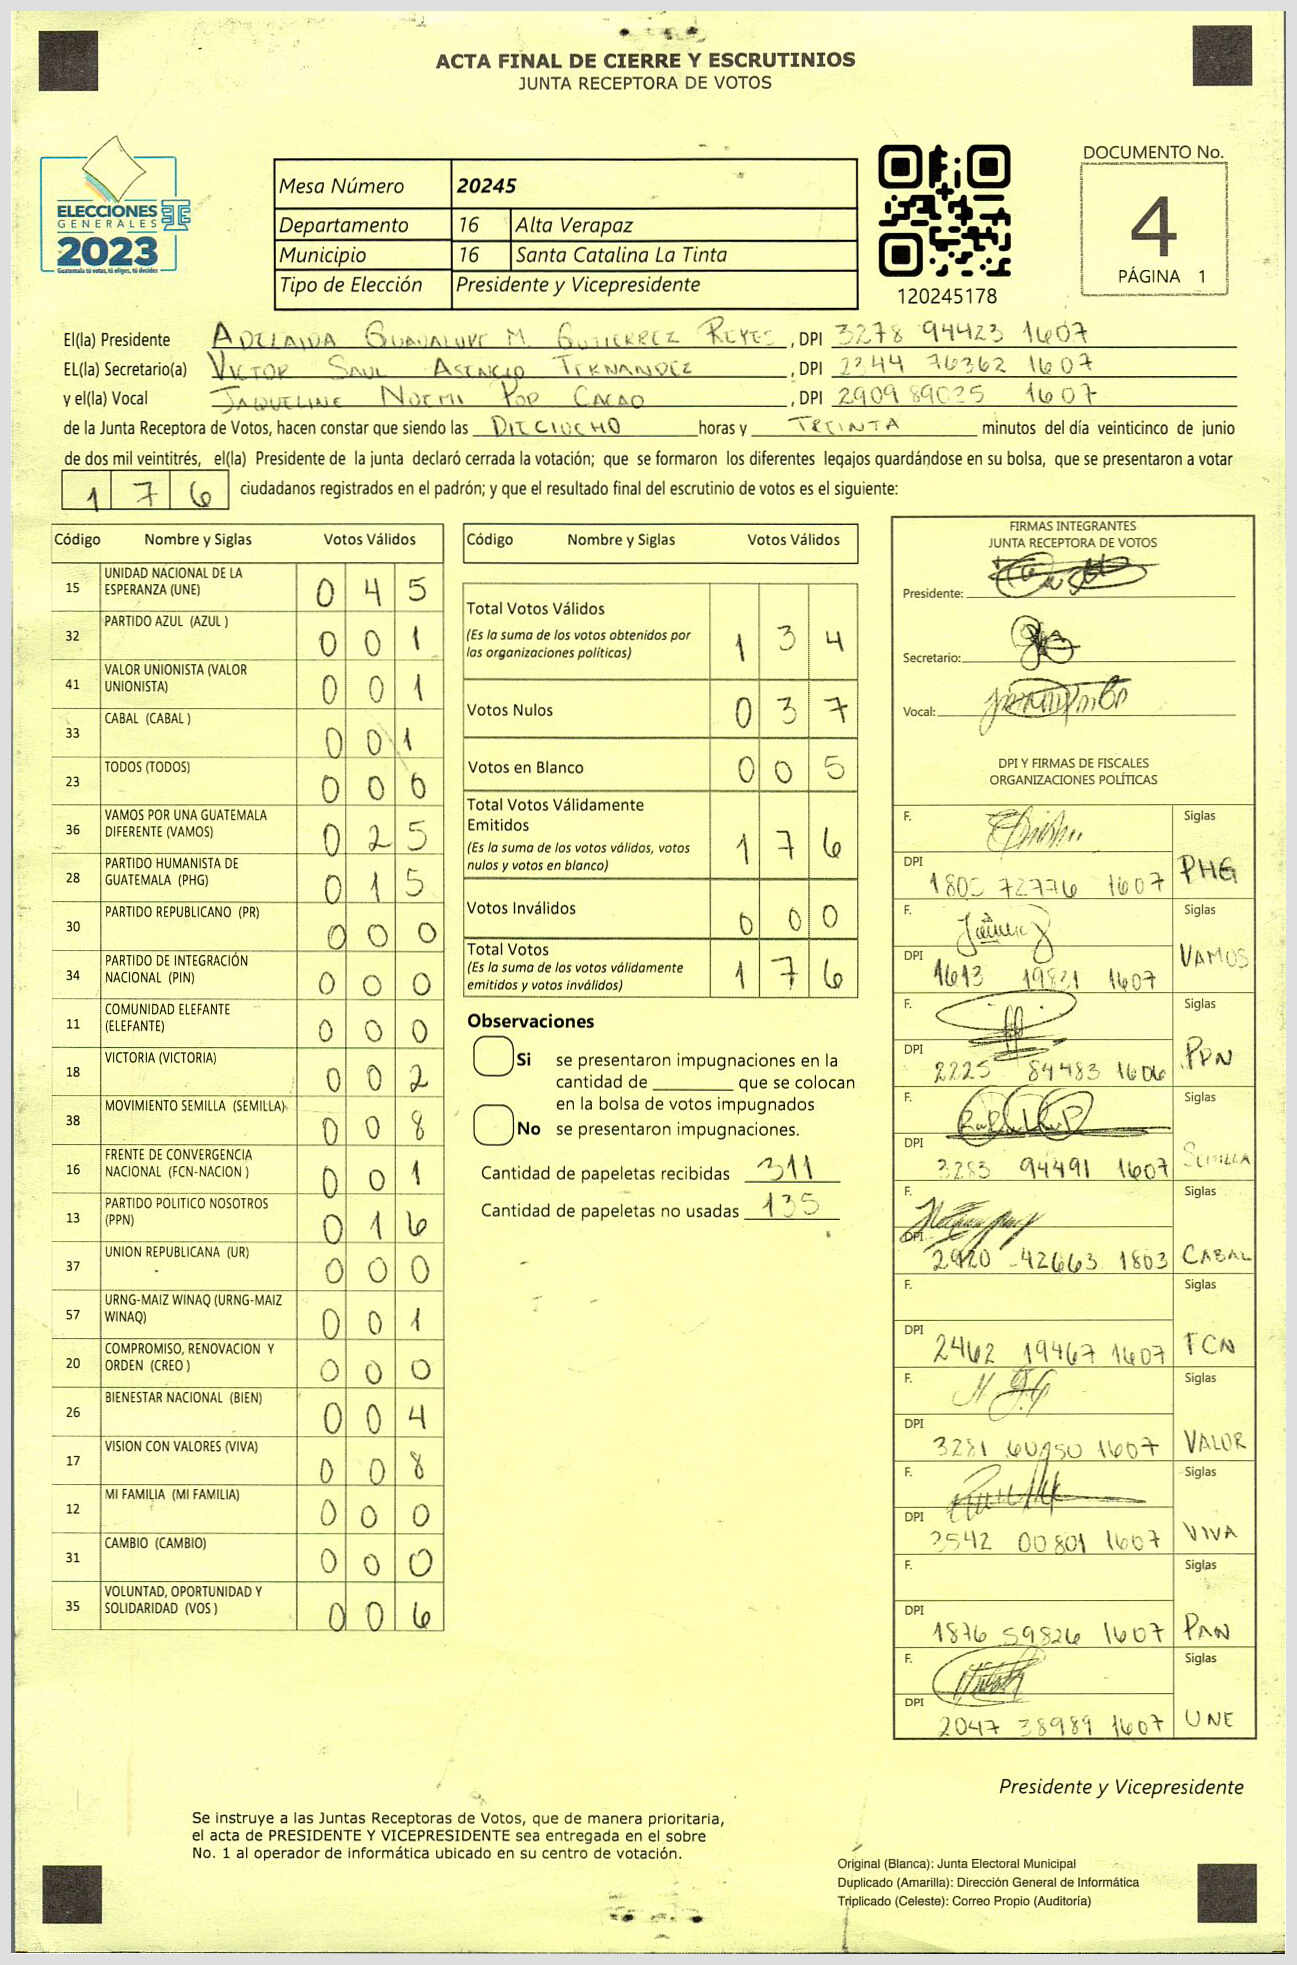 ACTA FINAL DE CIERRE Y ESCRUTINIOS
JUNTA RECEPTORA DE VOTOS
ELECCIONES
GENERALES
2023
Guatemala tú votas, tú eliges, tú decides
Mesa Número 20245
Departamento 16 Alta Verapaz
Municipio 16 Santa Catalina La Tinta
Tipo de Elección Presidente y Vicepresidente
120245178
DOCUMENTO No.
4
PÁGINA 1
El(la) Presidente ADELAIDA GUADALUPE M. GUTIERREZ REYES, DPI 3278 94423 1607
EL(la) Secretario(a) VICTOR SAUL ASENCIO FERNANDEZ, DPI 2344 76362 1607
y el(la) Vocal JAQUELINE NOEMI POP CACAO, DPI 2909 89025 1607
de la Junta Receptora de Votos, hacen constar que siendo las DIECIOCHO horas y TREINTA minutos del día veinticinco de junio
de dos mil veintitrés, el(la) Presidente de la junta declaró cerrada la votación; que se formaron los diferentes legajos guardándose en su bolsa, que se presentaron a votar
176 ciudadanos registrados en el padrón; y que el resultado final del escrutinio de votos es el siguiente:
Código Nombre y Siglas Votos Válidos
15 UNIDAD NACIONAL DE LA ESPERANZA (UNE) 0 4 5
32 PARTIDO AZUL (AZUL ) 0 0 1
41 VALOR UNIONISTA (VALOR UNIONISTA) 0 0 1
33 CABAL (CABAL ) 0 0 1
23 TODOS (TODOS) 0 0 0
36 VAMOS POR UNA GUATEMALA DIFERENTE (VAMOS) 0 2 5
28 PARTIDO HUMANISTA DE GUATEMALA (PHG) 0 1 5
30 PARTIDO REPUBLICANO (PR) 0 0 0
34 PARTIDO DE INTEGRACIÓN NACIONAL (PIN) 0 0 0
11 COMUNIDAD ELEFANTE (ELEFANTE) 0 0 0
18 VICTORIA (VICTORIA) 0 0 2
38 MOVIMIENTO SEMILLA (SEMILLA) 0 0 8
16 FRENTE DE CONVERGENCIA NACIONAL (FCN-NACION ) 0 0 1
13 PARTIDO POLITICO NOSOTROS (PPN) 0 1 6
37 UNION REPUBLICANA (UR) 0 0 0
57 URNG-MAIZ WINAQ (URNG-MAIZ WINAQ) 0 0 1
20 COMPROMISO, RENOVACION Y ORDEN (CREO ) 0 0 0
26 BIENESTAR NACIONAL (BIEN) 0 0 4
17 VISION CON VALORES (VIVA) 0 0 8
12 MI FAMILIA (MI FAMILIA) 0 0 0
31 CAMBIO (CAMBIO) 0 0 0
35 VOLUNTAD, OPORTUNIDAD Y SOLIDARIDAD (VOS ) 0 0 6
Código Nombre y Siglas Votos Válidos
Total Votos Válidos 1 3 4
(Es la suma de los votos obtenidos por
las organizaciones políticas)
Votos Nulos 0 3 7
Votos en Blanco 0 0 5
Total Votos Válidamente
Emitidos 1 7 6
(Es la suma de los votos válidos, votos
nulos y votos en blanco)
Votos Inválidos 0 0 0
Total Votos 1 7 6
(Es la suma de los votos válidamente
emitidos y votos inválidos)
Observaciones
Si se presentaron impugnaciones en la
cantidad de ________ que se colocan
en la bolsa de votos impugnados
No se presentaron impugnaciones.
Cantidad de papeletas recibidas 311
Cantidad de papeletas no usadas 135
FIRMAS INTEGRANTES
JUNTA RECEPTORA DE VOTOS
Presidente:
Secretario:
Vocal:
DPI Y FIRMAS DE FISCALES
ORGANIZACIONES POLÍTICAS
F. Siglas
DPI 1805 72776 1607 PHG
F. Siglas
DPI 1613 19821 1607 VAMOS
F. Siglas
DPI 2225 84483 1606 PPN
F. Siglas
DPI 3283 94491 1607 SEMILLA
F. Siglas
DPI 2920 42663 1803 CABAL
F. Siglas
DPI 2462 19467 1607 FCN
F. Siglas
DPI 3281 1607 VALOR
F. Siglas
DPI 3542 00801 1607 VIVA
F. Siglas
DPI 1876 59826 1607 PAN
F. Siglas
DPI 2047 38989 1607 UNE
Presidente y Vicepresidente
Se instruye a las Juntas Receptoras de Votos, que de manera prioritaria,
el acta de PRESIDENTE Y VICEPRESIDENTE sea entregada en el sobre
No. 1 al operador de informática ubicado en su centro de votación.
Original (Blanca): Junta Electoral Municipal
Duplicado (Amarilla): Dirección General de Informática
Triplicado (Celeste): Correo Propio (Auditoría)